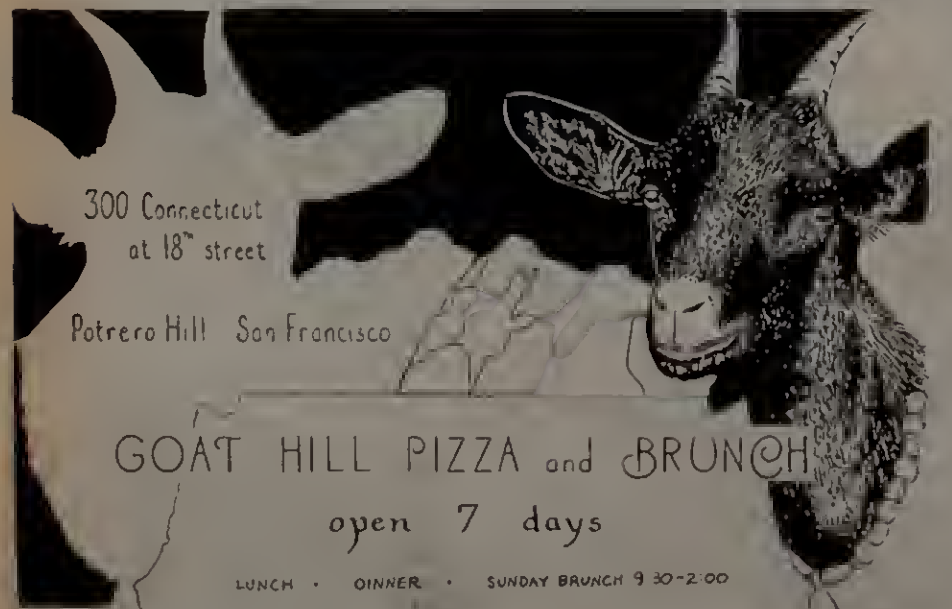 300 Connecticut
at 18th street
Potrero Hill San Francisco
GOAT HILL PIZZA and BRUNCH
open 7 days
LUNCH · DINNER · SUNDAY BRUNCH 9 30-2:00